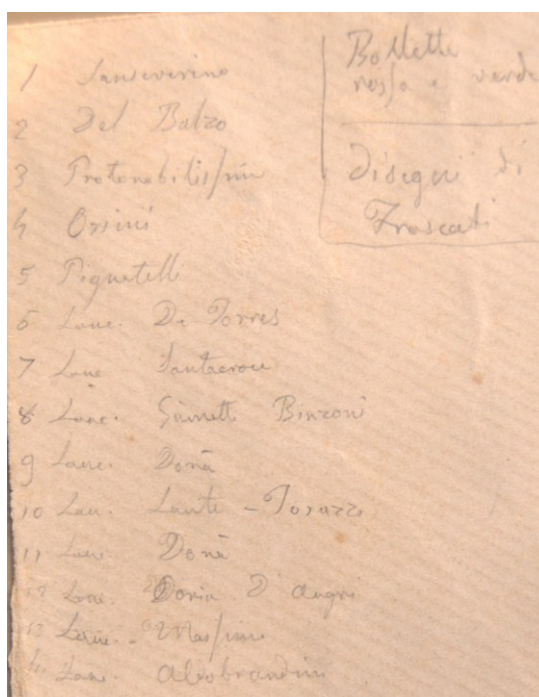 1 Sanseverino
2 Del Balzo
3 Protonobilissimi
4 Orsini
5 Pignatelli
6 Lanc. De Torres
7 Lanc Santacroce
8 Lanc. Ginnetti Binzoni
9 Lanc. Donà
10 Lan. Lante -
11 Lanc. Donà
12 Lanc. Doria D'Angri
13 Lanc. - Massimo
14 Lanc. Aldobrandini
Bollette
rossa e verde
Disegni di
Frascati